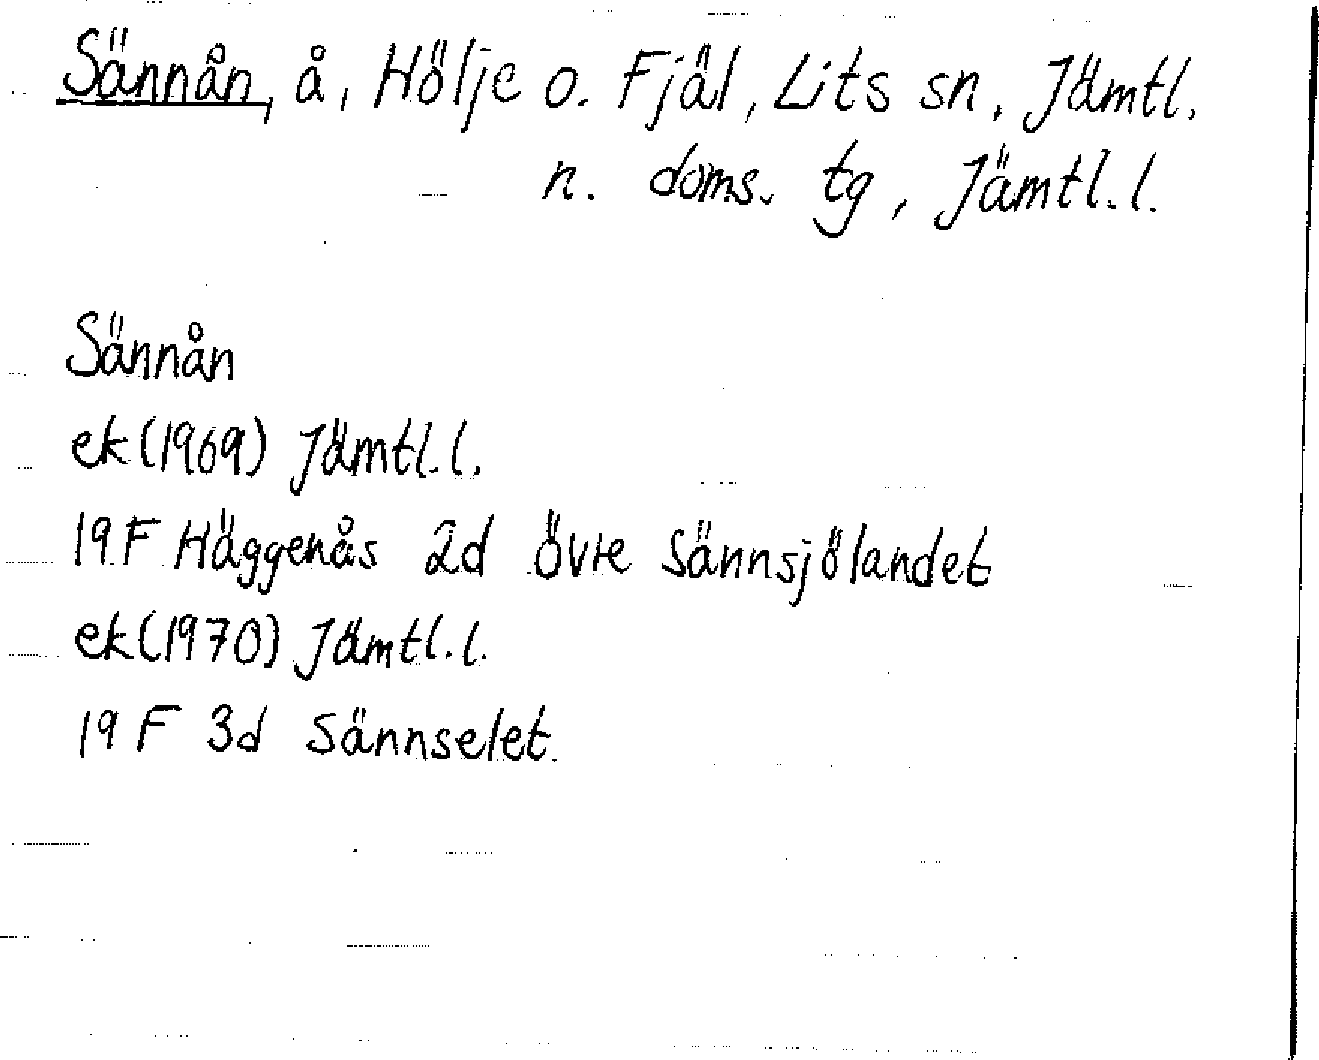 Sännån, å, Hölje o. Fjäl, Lits sn, Jämtl.
n. doms. tg, Jämtl.l.
Sännån
ek(1969) Jämtl.l.
19F Häggenås 2d Övre Sännsjölandet
ek(1970) Jämtl.l.
19F 3d Sännselet